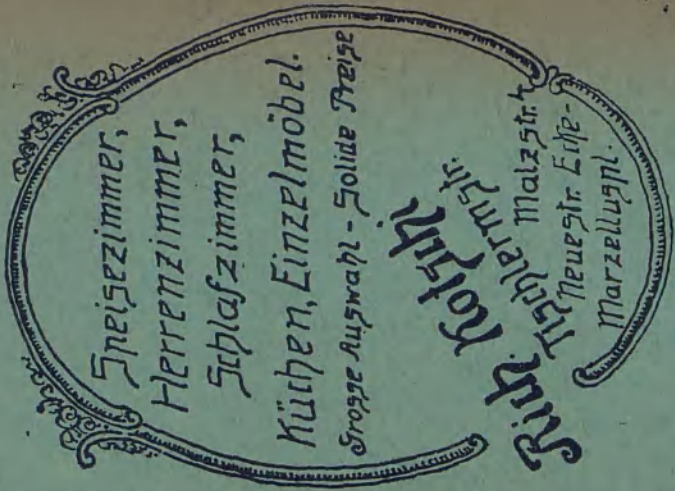 Speisezimmer,
Herrenzimmer,
Schlafzimmer,
Küchen, Einzelmöbel.
Grosse Auswahl - Solide Preise
Rich. Kotschi
Tischlermstr.
Malzstr. 4
Neuestr. Ecke-
Marzelluspl.